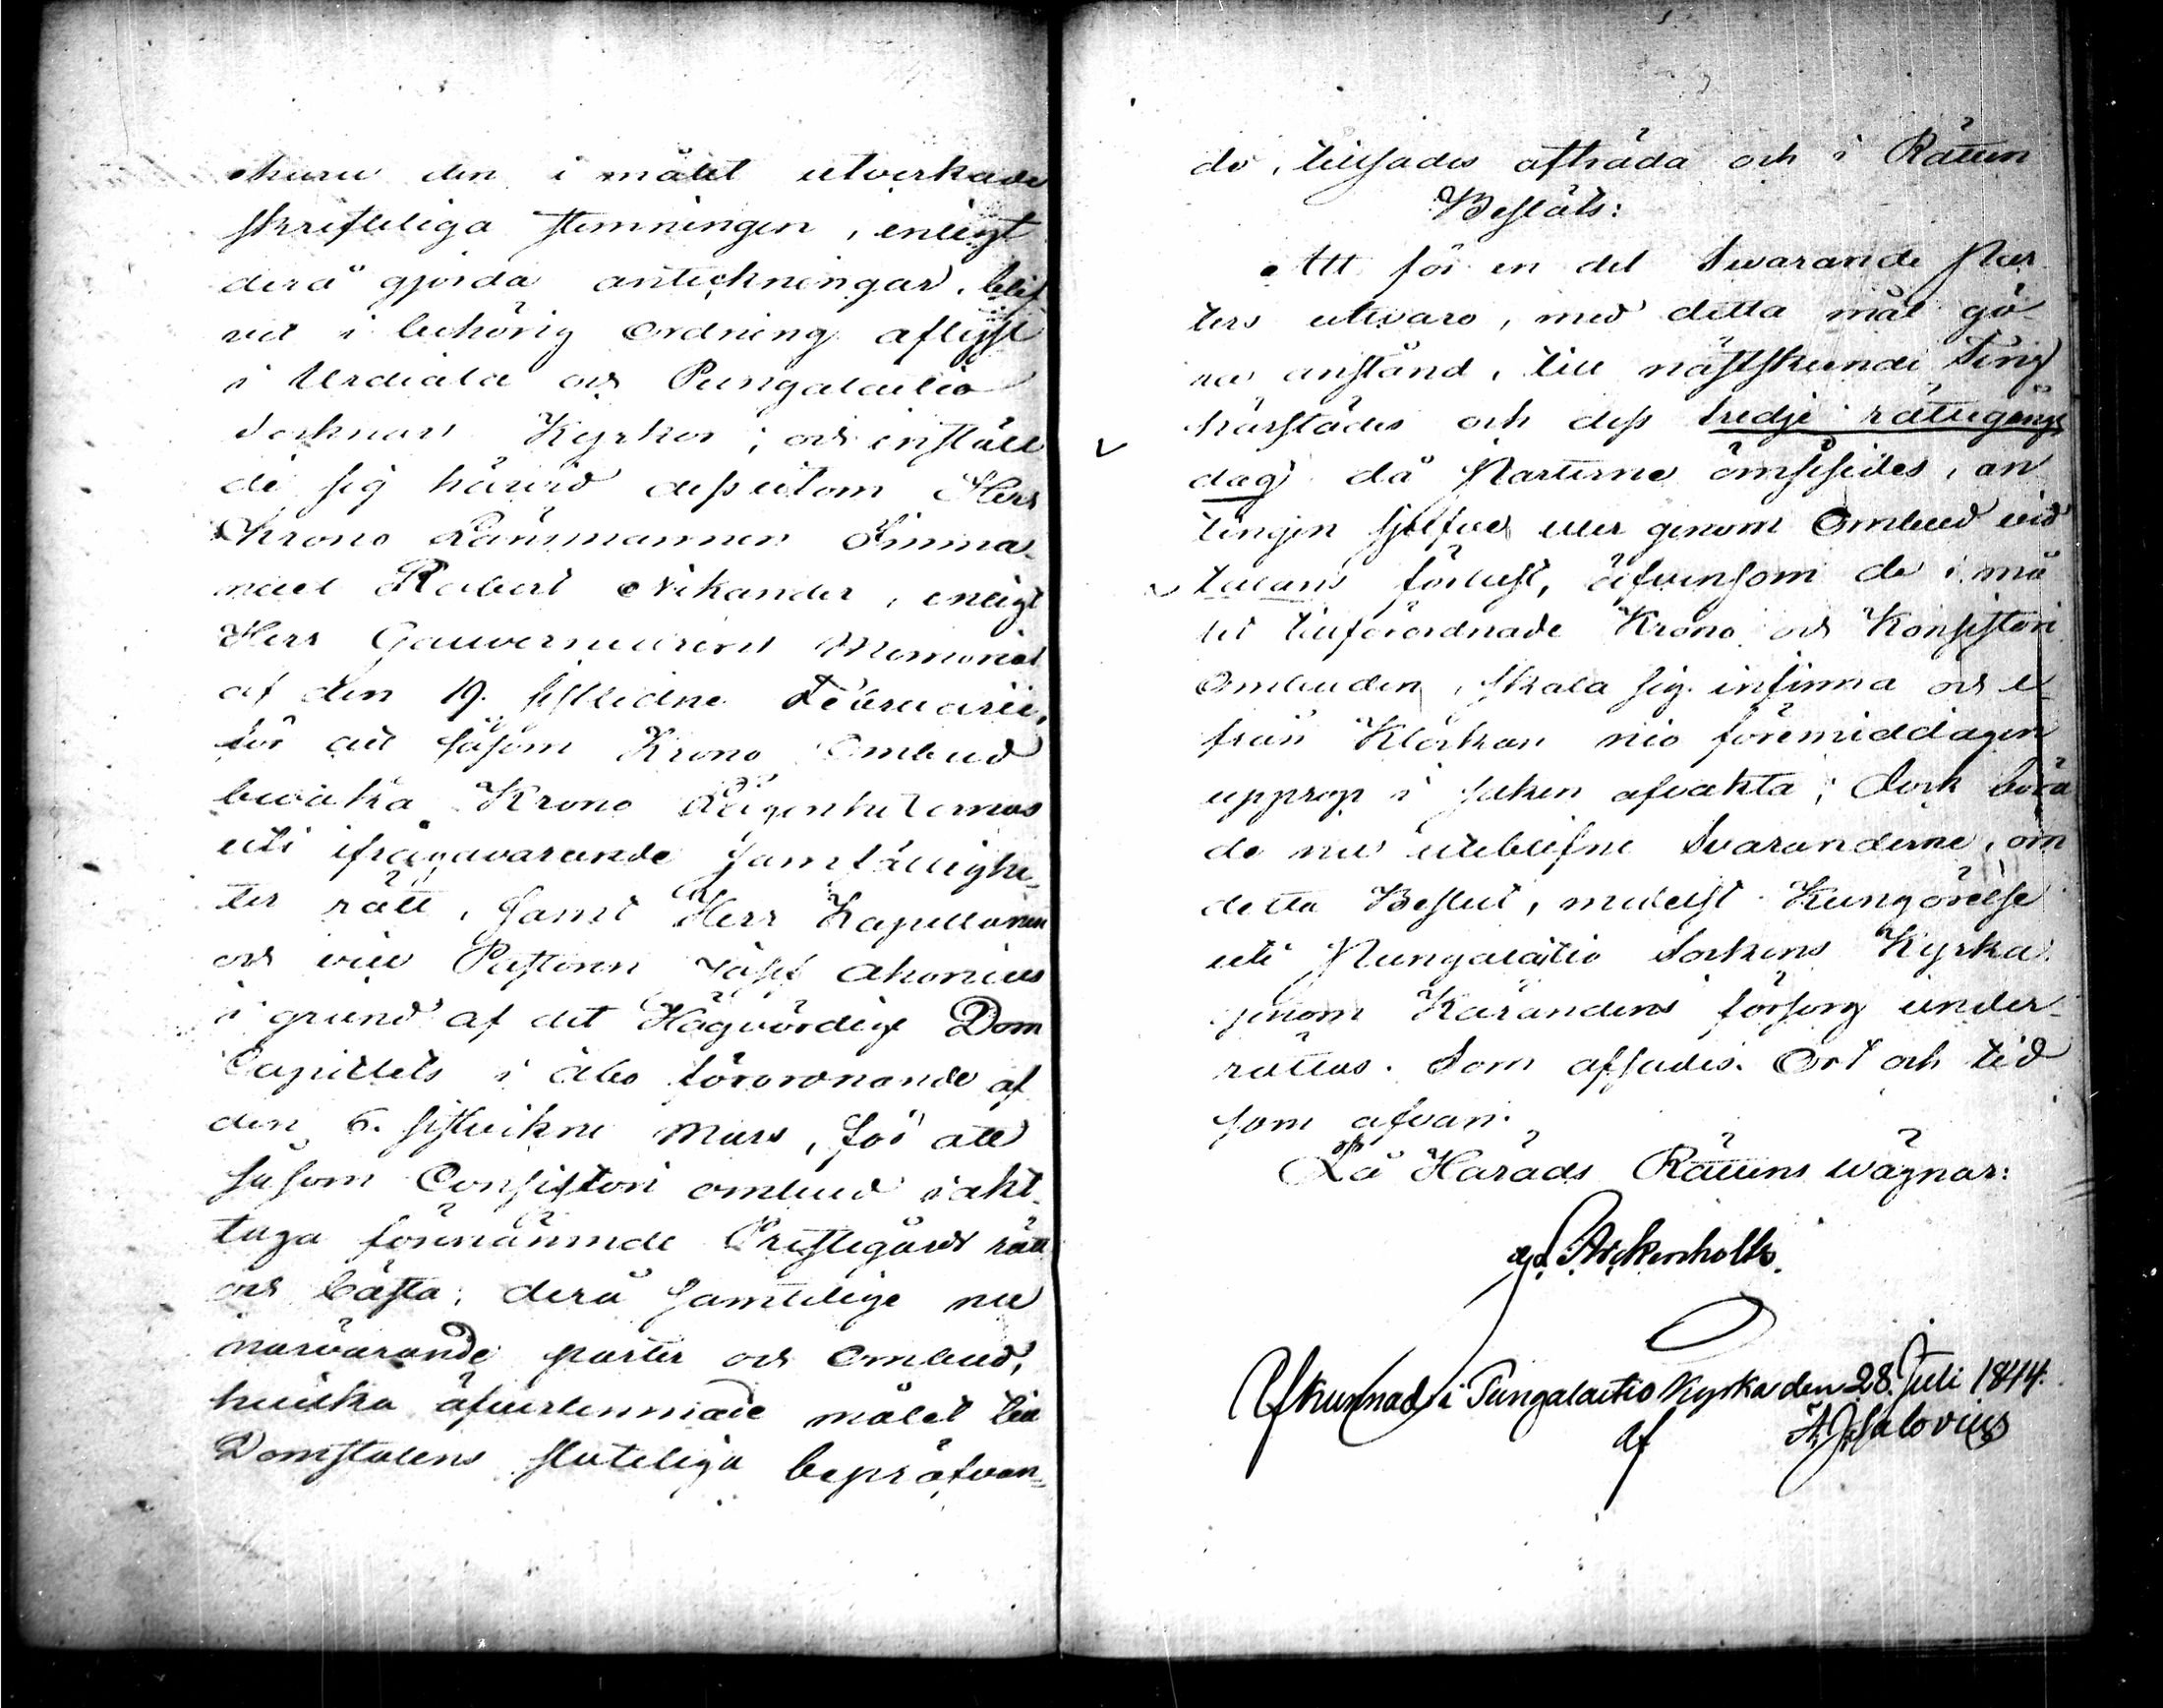 huru den i målet utverkade
skriftliga stemningen, enligt
derå gjorda anteckningar, blif
vit i behörig ordning aflyst
i Urdiala och Pungalaitio
Socknars Kyrkor; och instäld
de sig härvid dessutom Herr
Krono Länsmannen Imma
nuel Robert Nikander, enligt
Herr Gouverneurens Memorial
af den 19. sistledne Februarii,
för att såsom Krono Ombud
bevaka Krono lägenheternas
uti ifrågavarande samfällighe-
ter rätt, samt Herr Kapellanen
och vice Pastoren Josef Ahonius
i grund af det Högvördige Dom
Capitlets i Åbo förordnande af
den 6. sistvikne Mars, för att
såsom Consistorii ombud iakt-
taga förenämnde Prestegårds rätt
och bästa; derå samtelige nu
närvarande parter och Ombud,
hvilka öfverlemnade målet till
Domstolens sluteliga bepröfvan-
de, tillsades afträda och i Rätten
Beslöts:
Att för en del Svarande Par
ters utevaro, med detta mål gö-
res anstånd, till nästkunde Ting
härstädes och dess tredje rättegångs
dag då Parterne ömsesides, an
tingen sjelfve eller genom Ombud vid
talans förlust, äfvensom de i må
let tillförordnade Krono och Konsistorii
Ombuden, skola sig infinna och i-
från Klockan nio förmiddagen
upprop i saken afvakta; Dock böra
de nu uteblefne Svaranderne, om
detta Beslut, medelst Kungörelse
uti Pungalaitio Sockens Kyrka
genom Kärandens försorg under-
rättas. Som afsades. Ort och tid
som ofvan.
På Härads Rättens wägnar:
Afkunnad i Pungalaitio Kyrka den 28. Juli 1844.
af